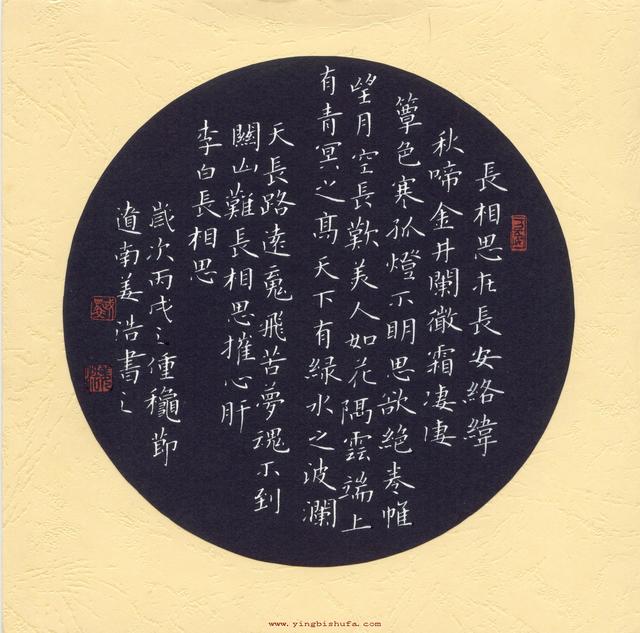 長相思在長安絡緯
秋啼金井闌微霜凄凄
簟色寒孤燈不明思欲絕卷帷
望月空長歎美人如花隔雲端上
有青冥之高天下有綠水之波瀾
天長路遠魂飛苦夢魂不到
關山難長相思摧心肝
李白長相思
歲次丙戌之龝節
南姜浩書之
www.yingbishufa.com